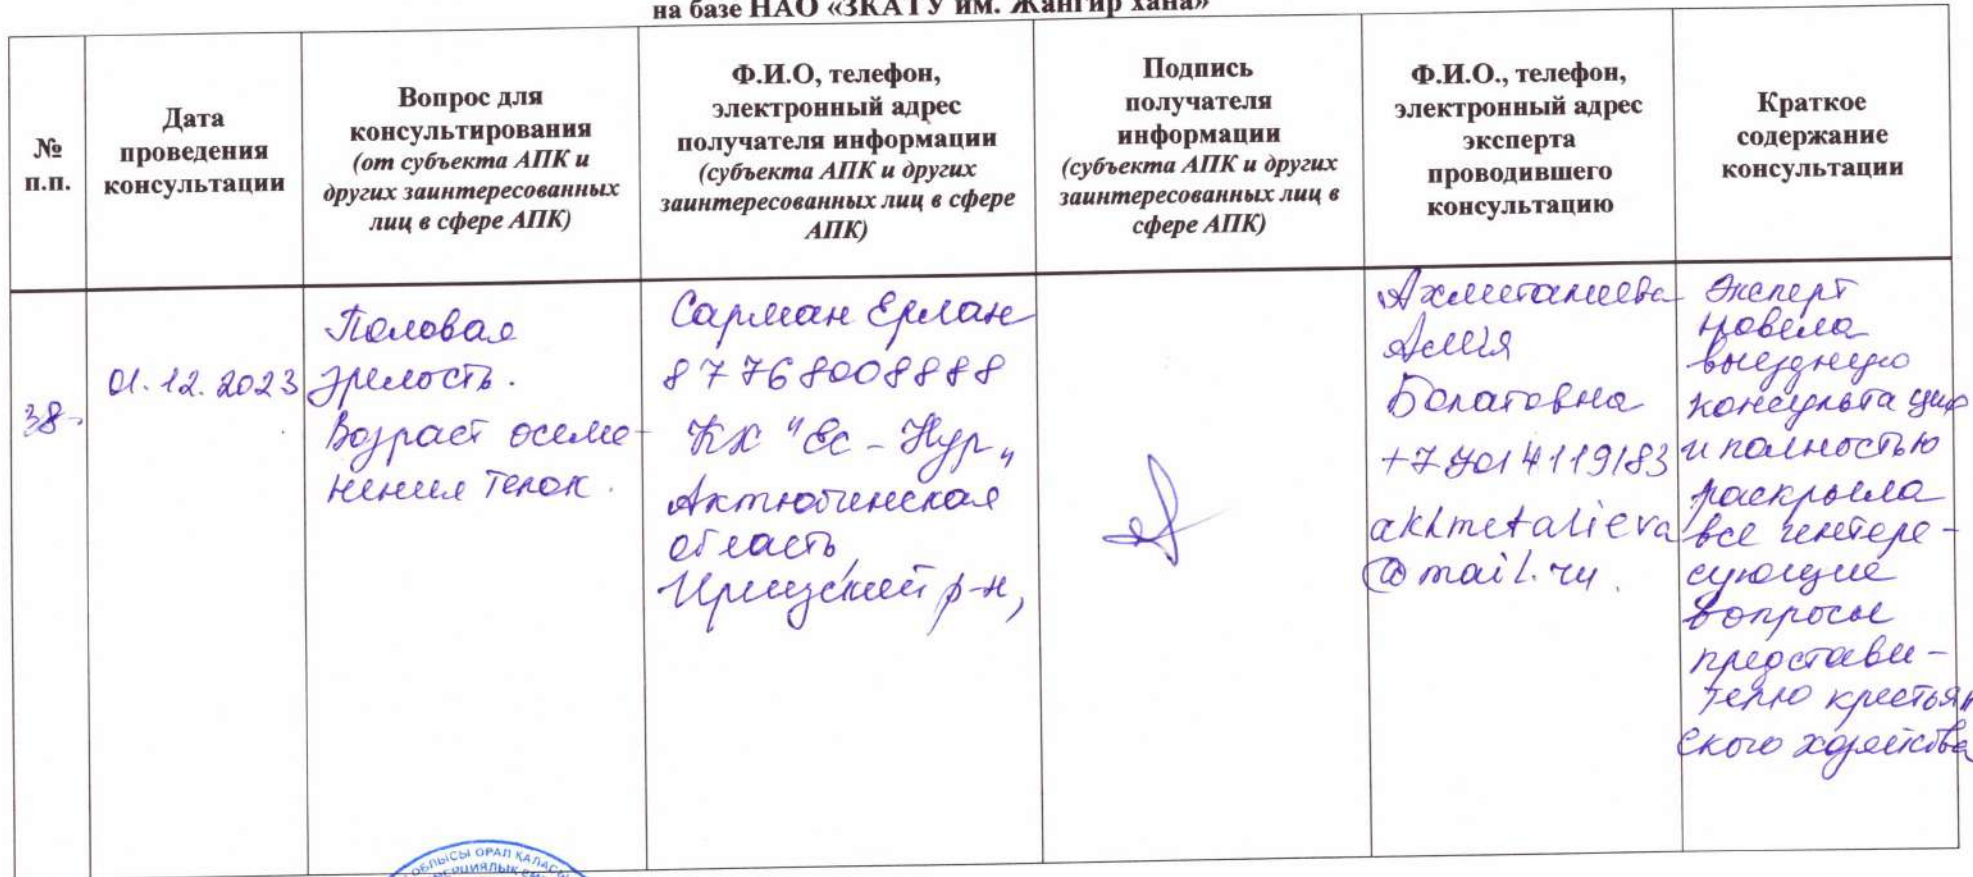 на базе НАО «ЗКАТУ им. Жангир хана»
№
п.п.
Дата
проведения
консультации
Вопрос для
консультирования
(от субъекта АПК и
других заинтересованных
лиц в сфере АПК)
Ф.И.О, телефон,
электронный адрес
получателя информации
(субъекта АПК и других
заинтересованных лиц в сфере
АПК)
Подпись
получателя
информации
(субъекта АПК и других
заинтересованных лиц в
сфере АПК)
Ф.И.О., телефон,
электронный адрес
эксперта
проводившего
консультацию
Краткое
содержание
консультации
38.
01.12.2023
Половая
зрелость.
Возраст осеме-
нения телок.
Сарман Ерлан
87768008888
КХ "Ес-Нур"
Актюбинская
область
Иргизский р-н,
Ахметалиева
Асия
Болатовна
+77014119183
akhmetalieva
@mail.ru.
Эксперт
провела
выездную
консультацию
и полностью
раскрыла
все интере-
сующие
вопросы
представи-
телю крестьян
ского хозяйства
ОБЛЫСЫ ОРАЛ ҚАЛАСЫ